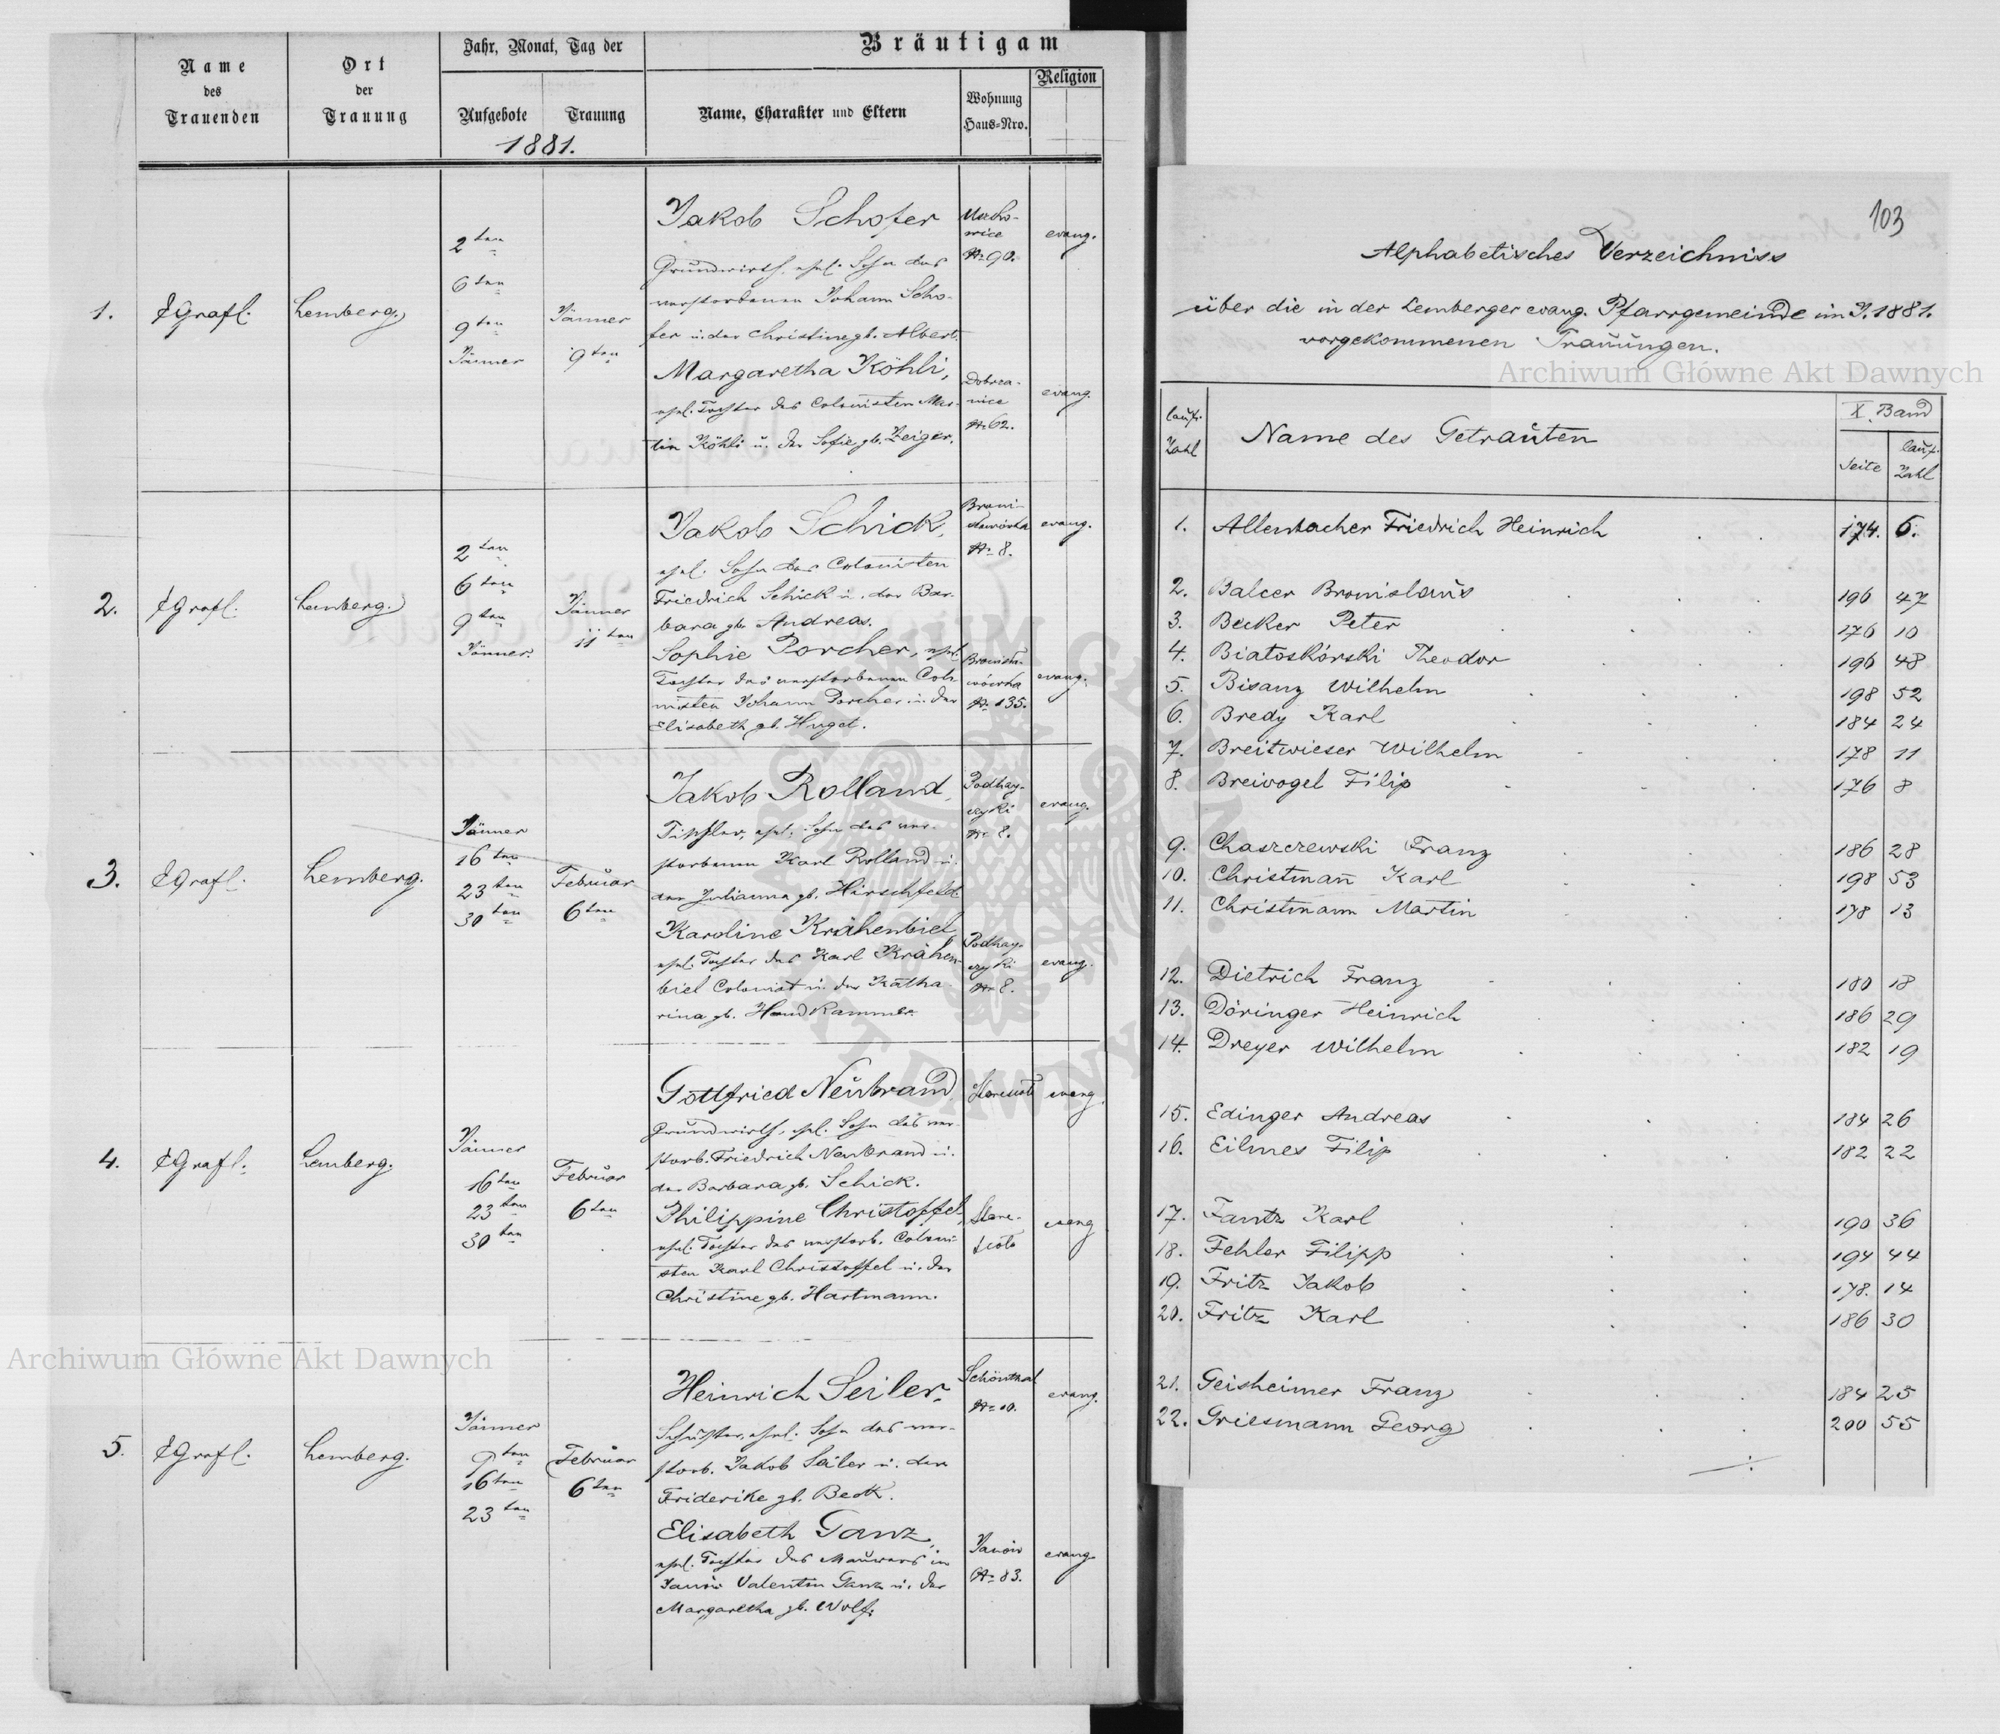 Name
des
Trauenden
Ort
der
Trauung
Jahr, Monat, Tag der
Aufgebote
Trauung
1881.
Bräutigam
Name, Charakter und Eltern
Wohnung
Haus-Nro.
Religion
1.
Lemberg.
2ten
6ten
9ten
Jänner
Jänner
9ten
Jakob Schofer
Grundwirth, ehel. Sohn des
verstorbenen Johann Scho-
fer u. der Christine gb. Albert.
Nr 90.
evang.
Margaretha Köhli,
ehel. Tochter des Colonisten Mar-
tin Köhli u. der Sofie gb. Zeiger.
Dobrza-
nica
Nr 62.
evang.
2.
Lemberg.
2ten
6ten
9ten
Jänner.
Jänner
11ten
Jakob Schick,
ehel. Sohn des Colonisten
Friedrich Schick u. der Bar-
bara gb. Andreas.
Broni-
sławówka
Nr 8.
evang.
Sophie Porcher, ehel.
Tochter des verstorbenen Colo-
nisten Johann Porcher u. der
Elisabeth gb. Huget.
Bronisła-
wówka
Nr 135.
evang.
3.
Lemberg.
Jänner
16ten
23ten
30ten
Februar
6ten
Jakob Rolland,
Tischler, ehel. Sohn des ver-
storbenen Karl Rolland u.
der Julianna gb. Hirschfeld.
Podhay-
czyki
Nr 8.
evang.
Karoline Krähenbiel,
ehel. Tochter des Karl Krähen-
biel Colonist u. der Katha-
rina gb. Handkammer.
Podhay-
czyki
Nr 8.
evang.
4.
Lemberg.
Jänner
16ten
23ten
30ten
Februar
6ten
Gottfried Neubrand,
Grundwirth, ehel. Sohn des ver-
storb. Friedrich Neubrand u.
der Barbara gb. Schick.
evang.
Philippine Christoffel,
ehel. Tochter des verstorb. Coloni-
sten Karl Christoffel u. der
Christine gb. Hartmann.
evang
5.
Lemberg.
Jänner
9ten
16ten
23ten
Februar
6ten
Heinrich Seiler,
Schuster, ehel. Sohn des ver-
storb. Jakob Seiler u. der
Friderike gb. Beck.
Schönthal
Nr 10.
evang.
Elisabeth Ganz,
ehel. Tochter des Maurers in
Janów Valentin Ganz u. der
Margaretha gb. Wolf.
Janów
Nr 83.
evang.
Archiwum Główne Akt Dawnych
103
Alphabetisches Verzeichniss
über die in der Lemberger evang. Pfarrgemeinde im J. 1881.
vorgekommenen Trauungen.
Archiwum Główne Akt Dawnych
lauf.
Zahl
Name des Getrauten
X. Band
Seite
lauf.
Zahl
1. Allenbacher Friedrich Heinrich 174. 6.
2. Balcer Bronislaus 196 47
3. Becker Peter 176 10
4. Białoskórski Theodor 196 48
5. Bisanz Wilhelm 198 52
6. Bredy Karl 184 24
7. Breitwieser Wilhelm 178 11
8. Breivogel Filip 176 8
9. Chaszczewski Franz 186 28
10. Christmañ Karl 198 53
11. Christmann Martin 178 13
12. Dietrich Franz 180 18
13. Döringer Heinrich 186 29
14. Dreyer Wilhelm 182 19
15. Edinger Andreas 184 26
16. Eilmes Filip 182 22
17. Fantz Karl 190 36
18. Fehler Filipp 194 44
19. Fritz Jakob 178. 14
20. Fritz Karl 186 30
21. Geisheimer Franz 184 25
22. Griesmann Georg 200 55